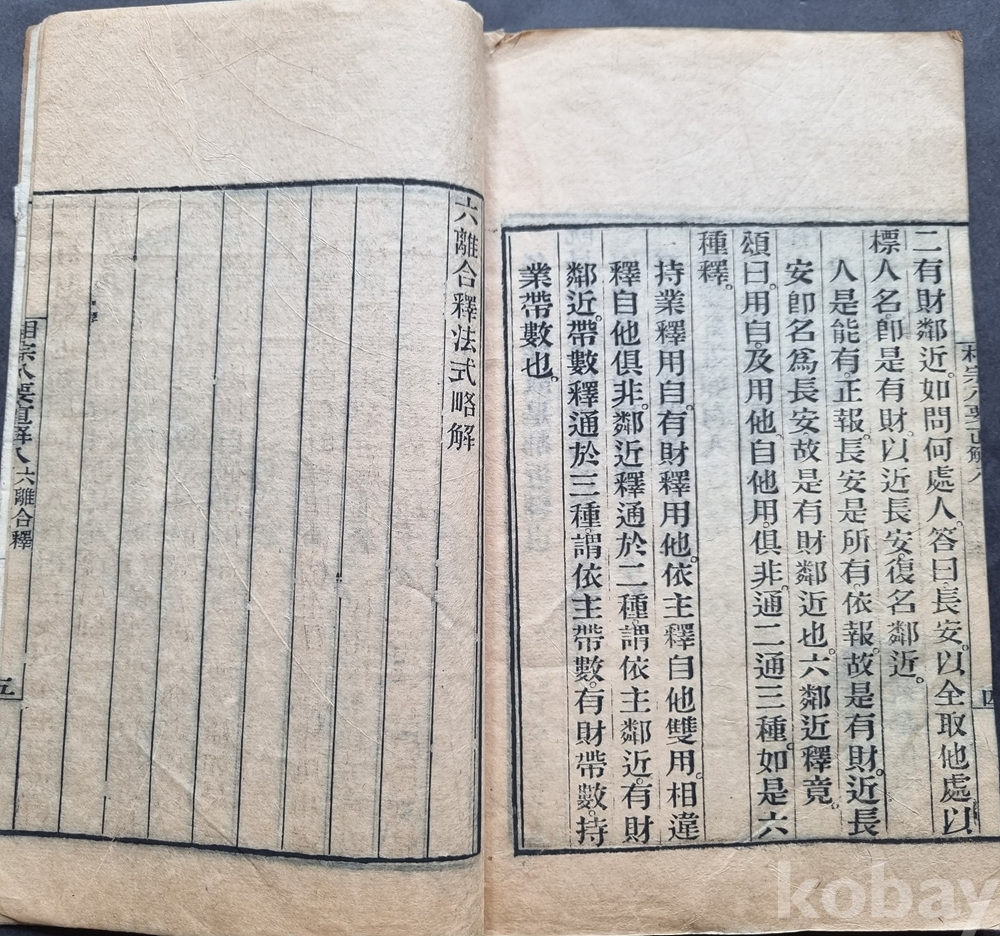 二有財鄰近。如問何處人。答曰長安。以全取他處以
標人名。卽是有財。以近長安。復名鄰近。
人是能有。正報。長安是所有。依報。故是有財。近長
安卽名爲長安故是有財鄰近也。六鄰近釋竟。
頌曰。用自。及用他。自他用。俱非。通二通三種。如是六
種釋。
持業釋用自。有財釋用他。依主釋自他雙用。相違
釋自他俱非。鄰近釋通於二種。謂依主鄰近。有財
鄰近。帶數釋通於三種。謂依主帶數。有財帶數。持
業帶數也。
四
六離合釋法式略解
相宗八要直解八 六離合釋
五
kobay